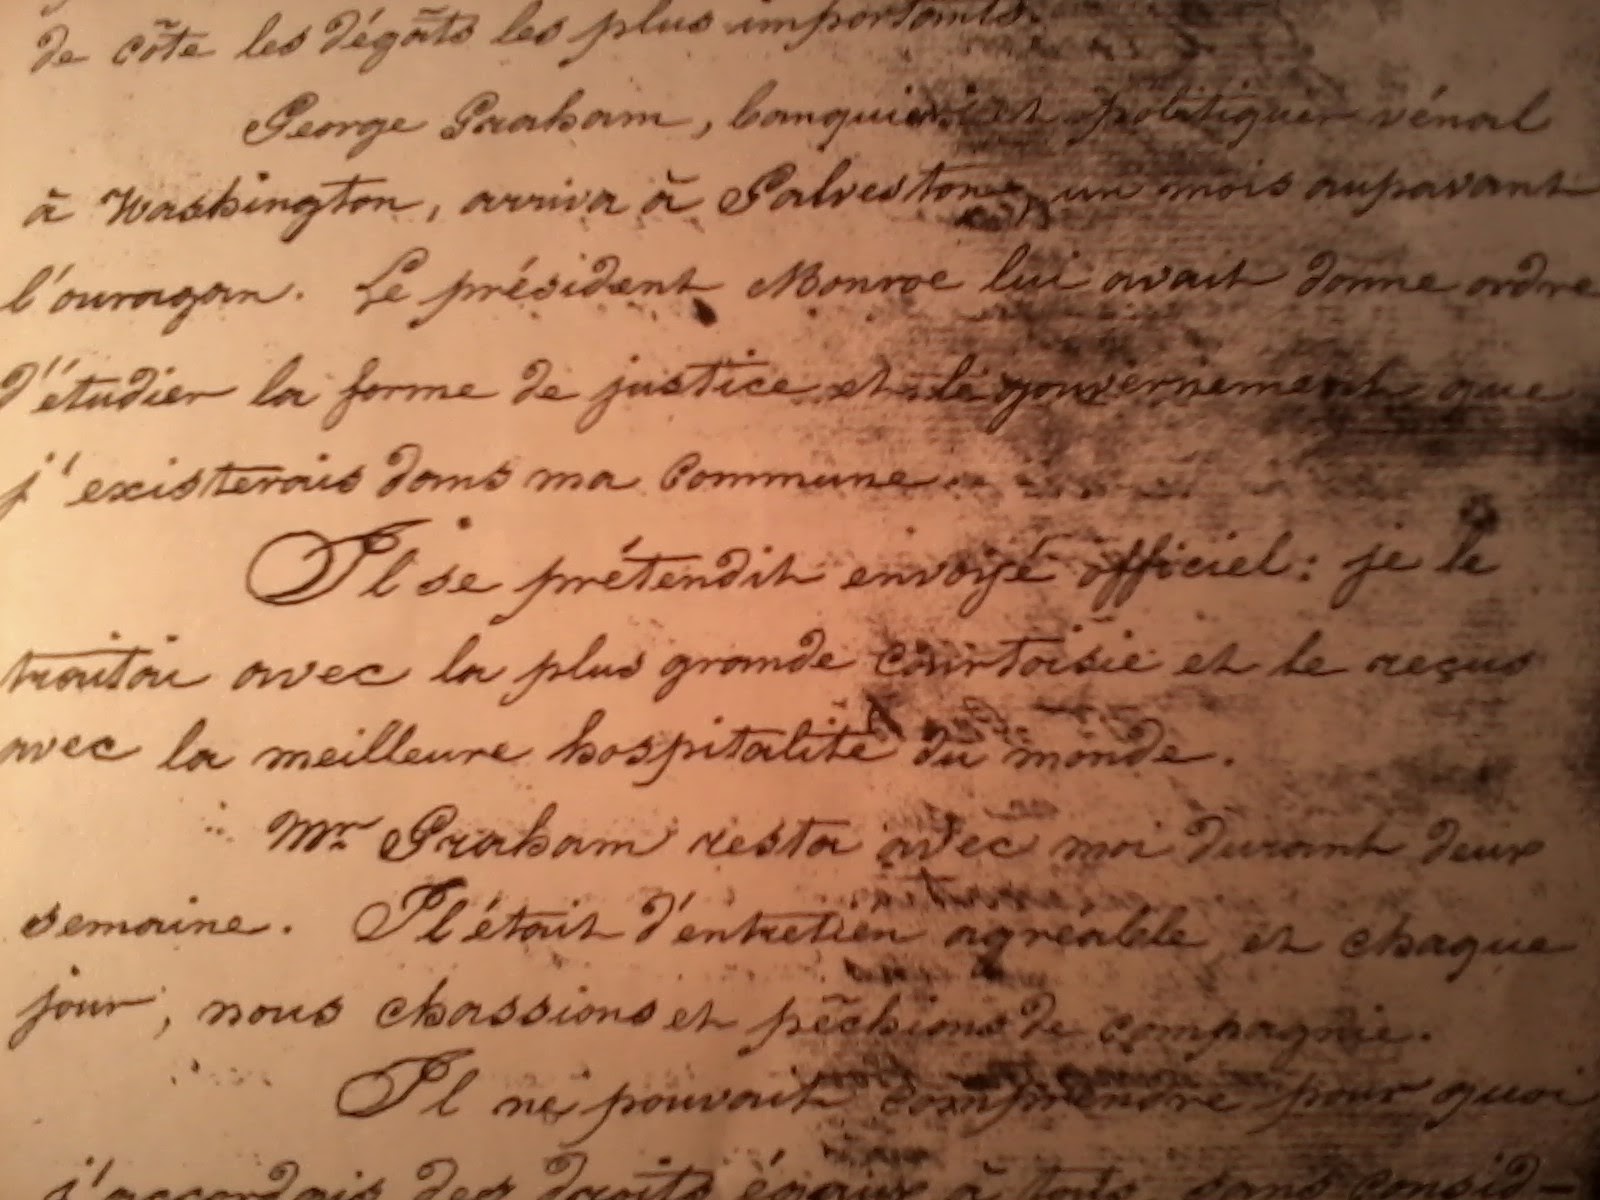 de côte les dégâts les plus importants.
George Graham, banquier et politiquer vénal
à Washington, arriva à Galveston, un mois auparavant
l'ouragan. Le président Monroe lui avait donne ordre
d'étudier la forme de justice et le gouvernement que
j'existerais dans ma commune.
Il se prétendit envoyé officiel: je le
traitai avec la plus grande courtoisie et le reçus
avec la meilleure hospitalité du monde.
Mr Graham resta avec moi durant deux
semaine. Il était d'entretien agréable et chaque
jour, nous chassions et pêchions de compagnie.
Il ne pouvait comprendre pour quoi
j'accordais des droits égaux à tous sans consid-